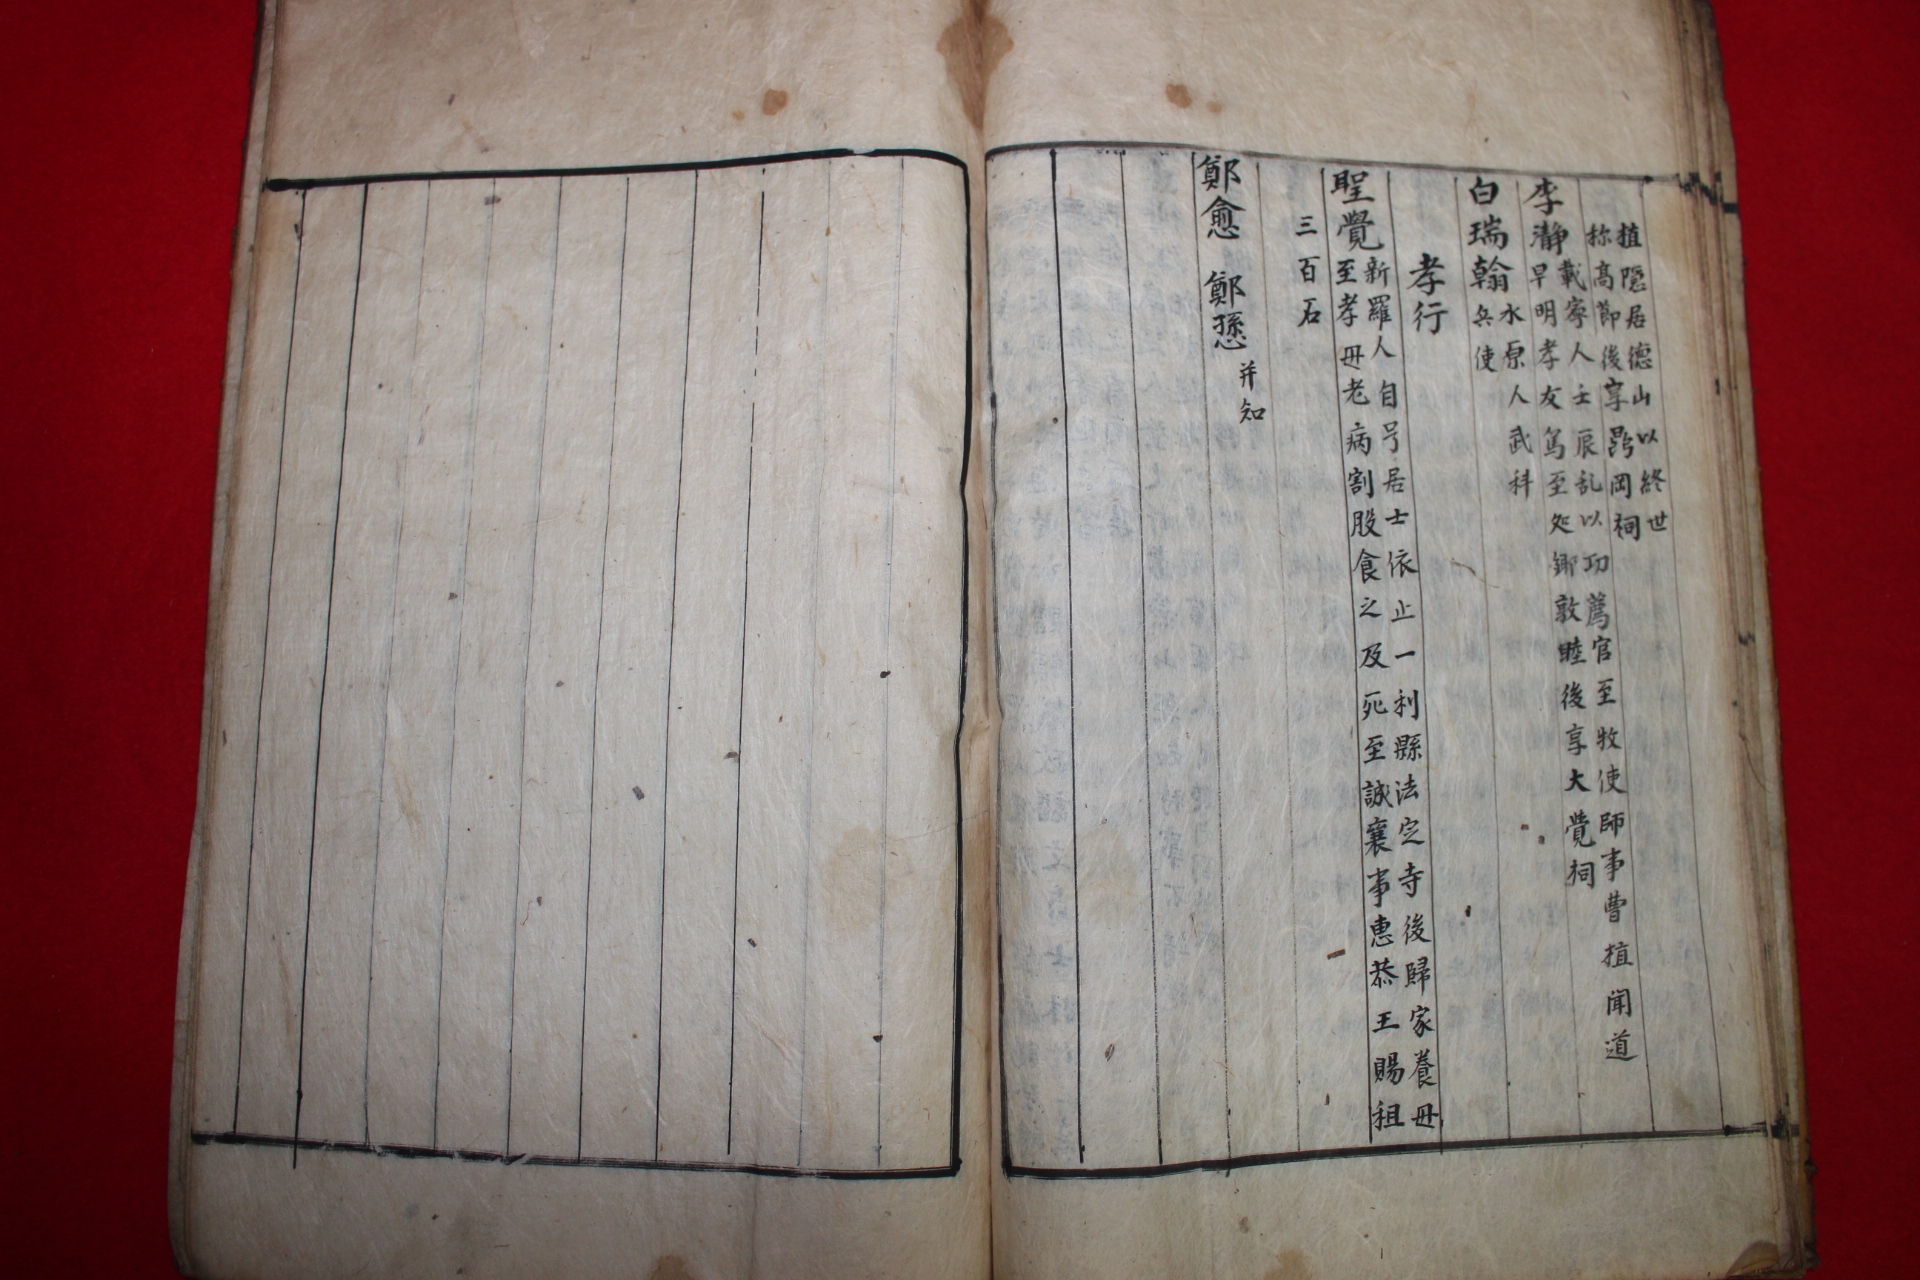 植隠居德山以終世
称髙節後享㓒岡祠
李瀞載寧人士辰乱以功薦官至牧使師事曹植聞道
早明孝友篤至処鄉敦睦後享大覺祠
白瑞翰水原人武科
兵使
孝行
聖覺新羅人自号居士依止一利縣法定寺後歸家養母
至孝母老病割股食之及死至誠襄事恵恭王賜租
三百石
鄭愈 鄭愻并知